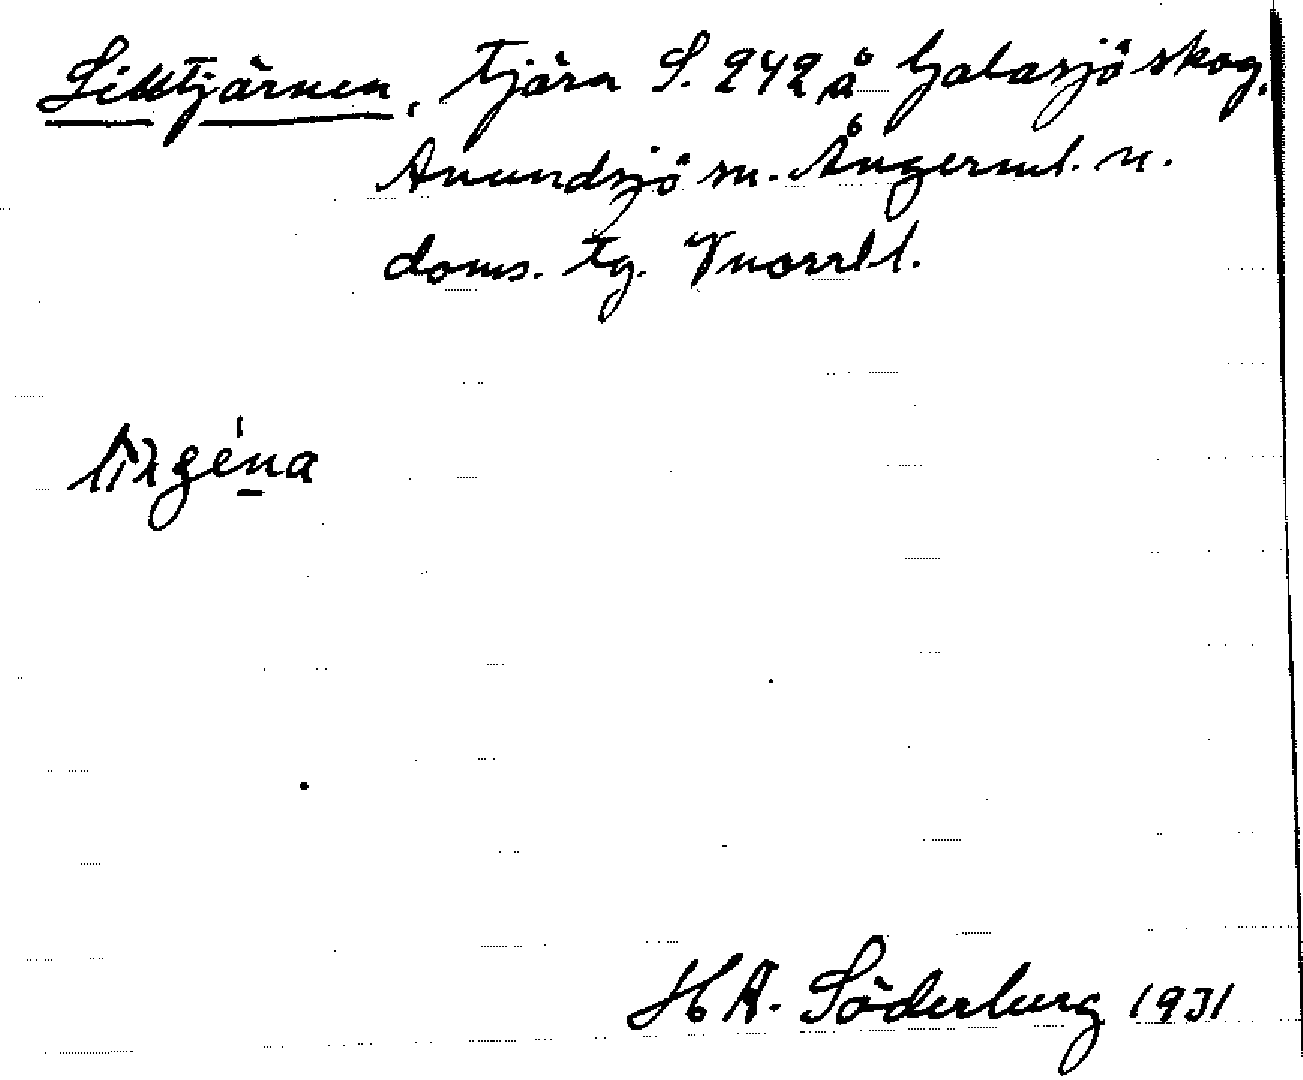 Siktjärnen, tjärn S. 242 å Galasjö skog,
Anundsjö sn. Ångerml. n.
doms. tg. Vnorrl l.
H A. Söderberg 1931